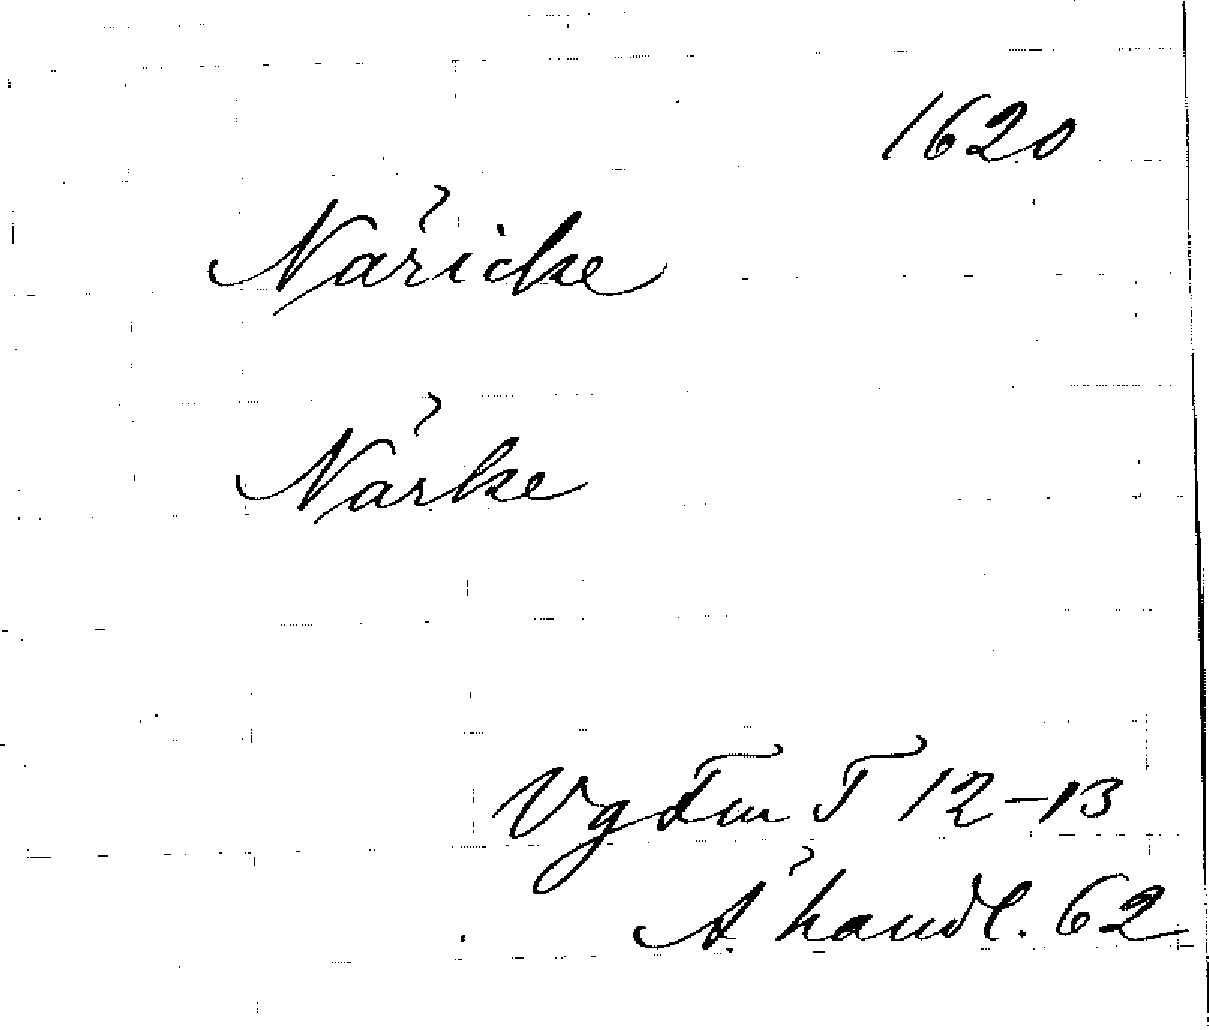 1620
Näricke
Närke
Vg Fm T 12-13
Ä handl. 62